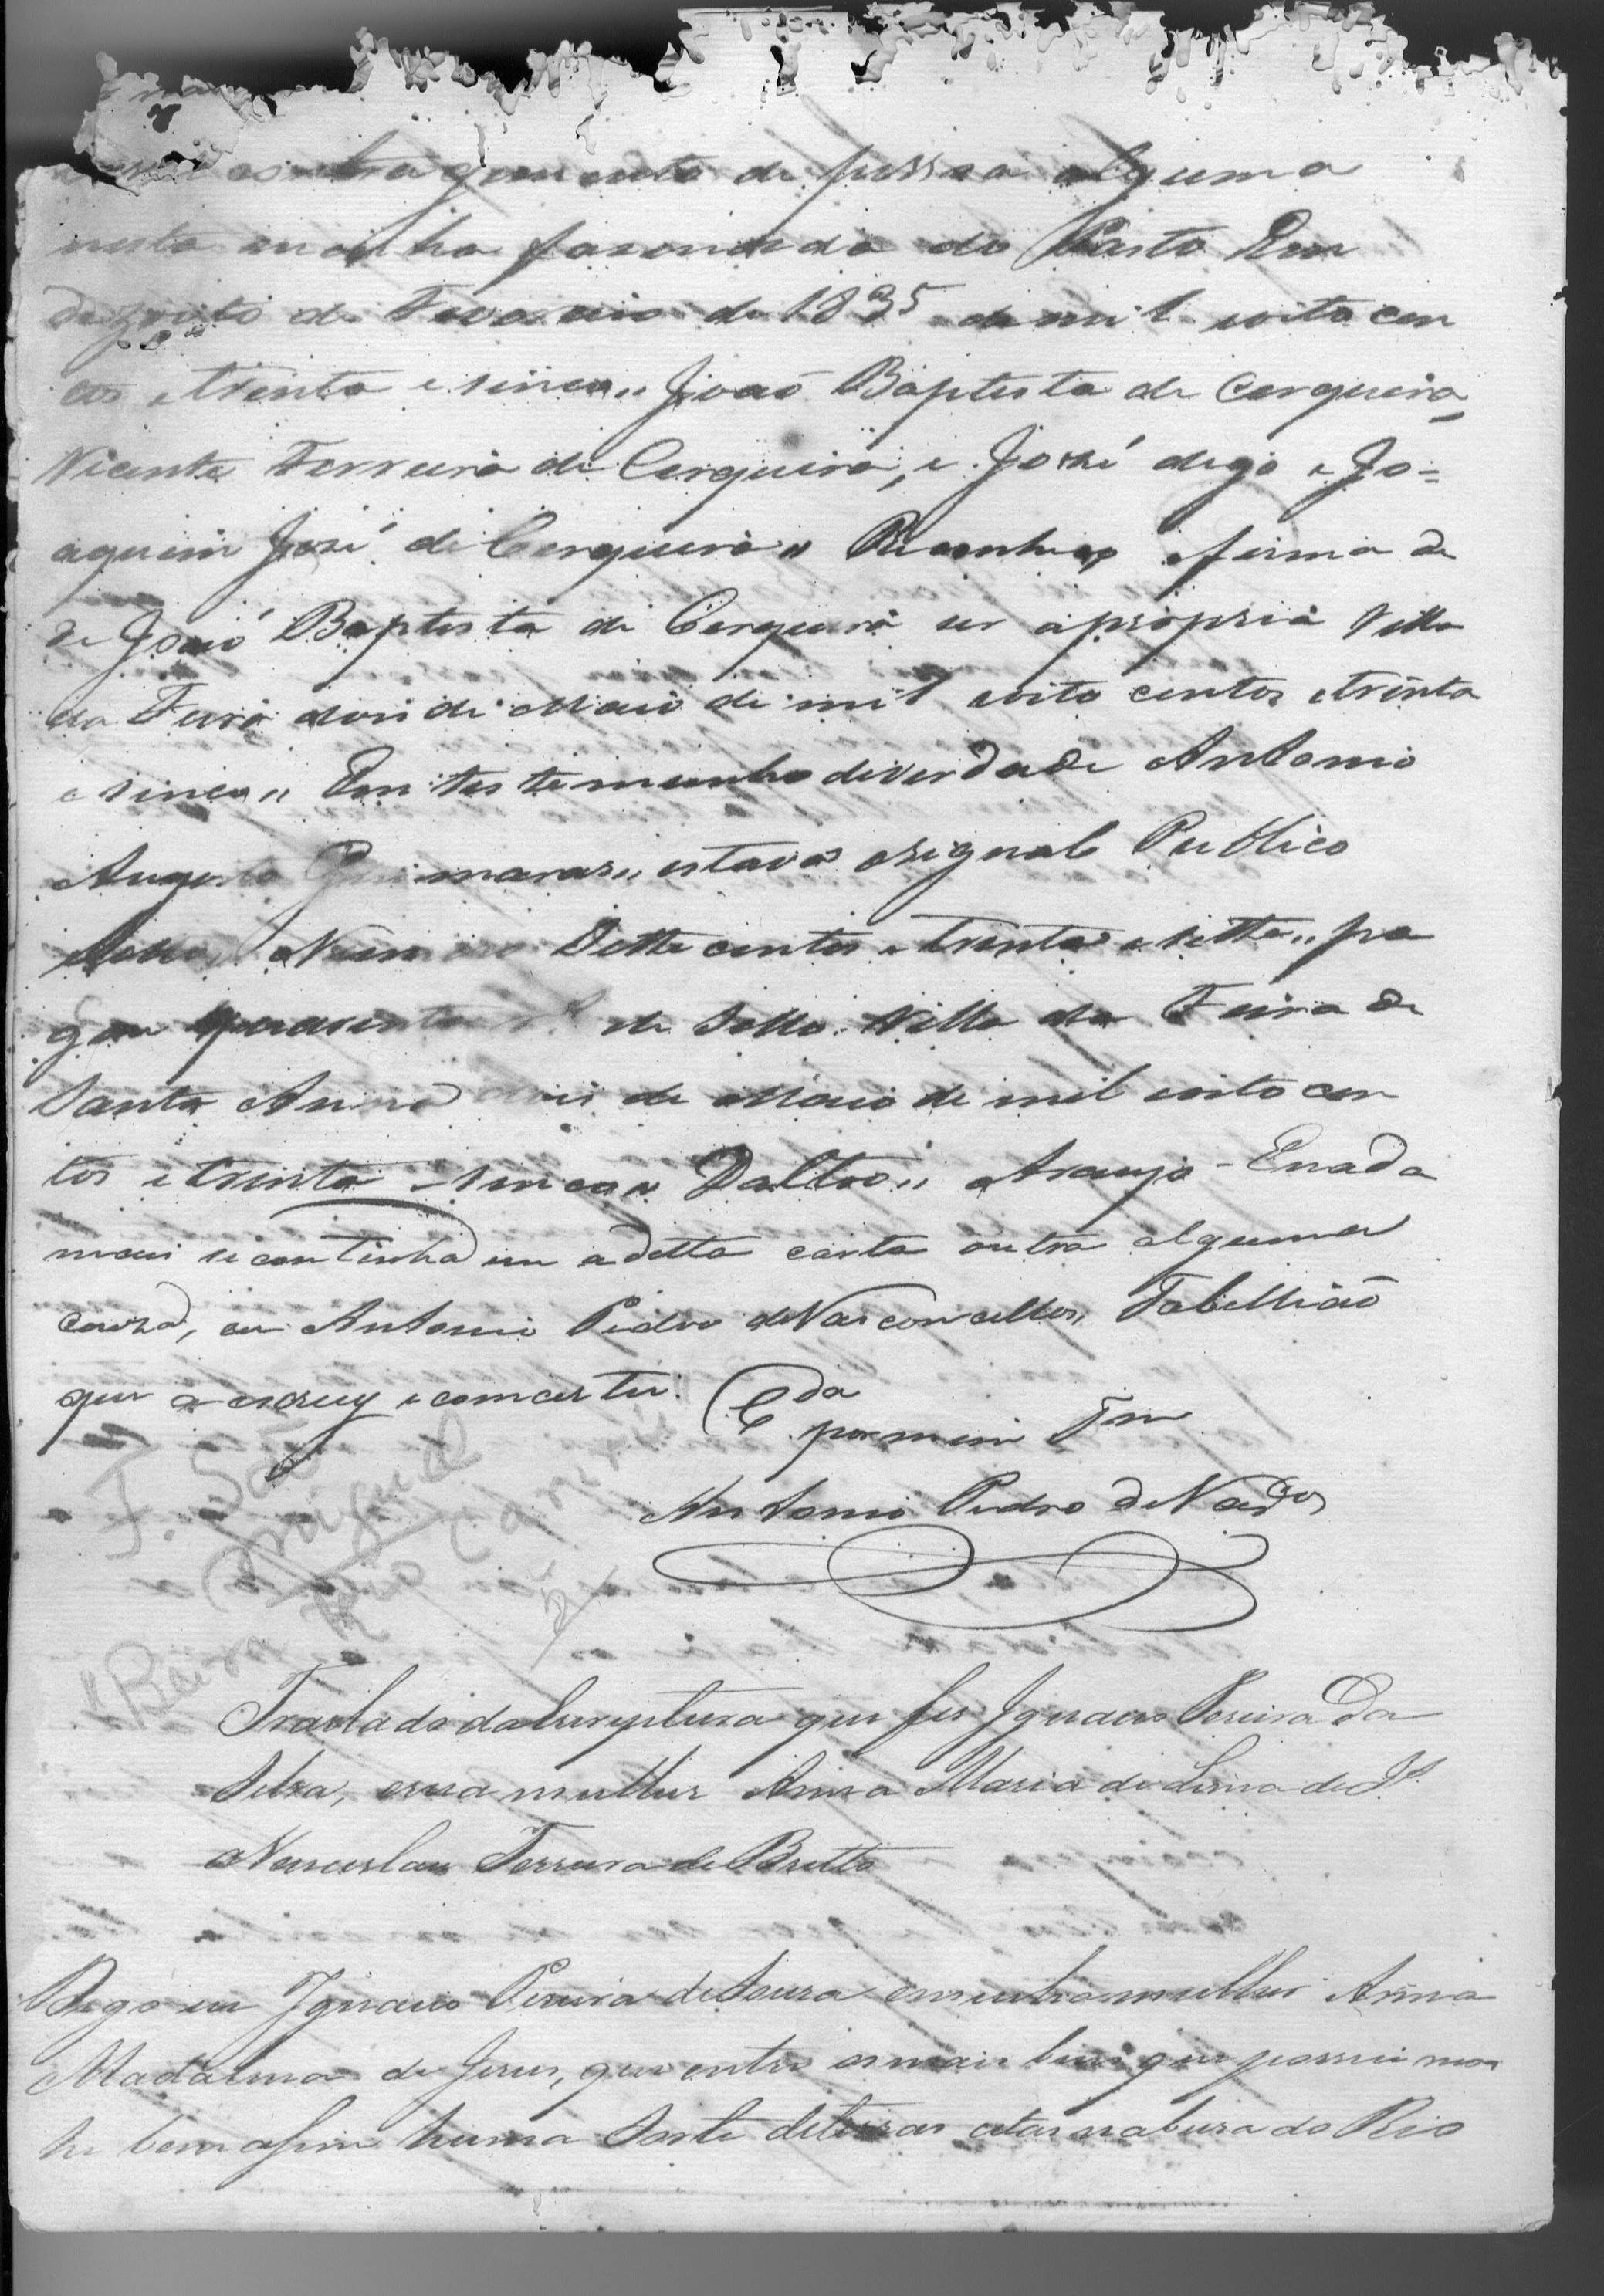 constragimento de pessoa alguma
nesta minha fazenda do Pasto Em
dezoito de Fevereiro de 1835 de mil oito cen
tos e trinta e sinco,, João Baptista de Cerqueira,
Vicente Ferreira de Cerqueira, e José digo e Jo=
aquim José de Cerqueira,, Reconheço a firma de
de João Baptista de Cerqueira ser a propria Villa
da Feira dois de Maio de mil oito centos e trinta
e sinco,, Em testemunho de verdade Antonio
Augusto Guimaraes,, estava o signal Publico
Sello Numero Sette centos e trinta e sette,, pa
gou quarenta rs de Sello. Villa da Feira de
Santa Anna dois de Maio de mil oito cen
tos e trinta e sinco,, Daltro,, Araujo - E nada
mais se continha em a ditta carta outra alguma
couza, eu Antonio Pedro de Vasconcellos, Tabellião
que a escrevy e comcertei. Cda
por mim Tam
Antonio Pedro de Vas.cos
F. São
Miguel
"Barra Rio Cariz
Traslado da Escriptura que fes Ignacio Pereira da
Silva, e sua mulher Anna Maria de Lima de Js.
a Venceslau Ferreira de Britto
Digo eu Ignacio Pereira de Souza e minha mulher Anna
Madalena de Jesus, que entre os mais bens que possuimos
he bem asim huma Sorte de terras citas na beira do Rio